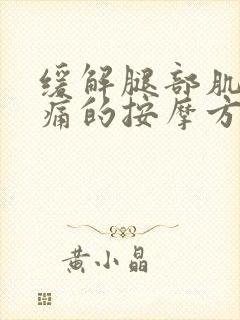 缓解腿部肌
痛的按摩方
黄小晶